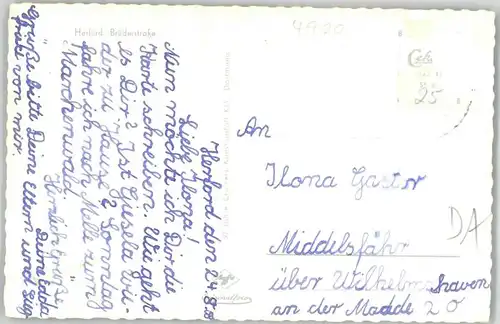 4900
Herford Brüderstraße
Herford den 24.8.
Liebe Ilona!
Nun möchte ich Dir die
Karte schreiben. Wie geht
es Dir? Ist Gisela wie-
der zu Hause? Sonntag
fahre ich nach Melle zum
Märchenwald.
Herzlich Grüße
Deine
Grüße bitte Deine Eltern und
von mir.
An
Ilona
Middelsfähr
über Wilhelmshaven
an der Madde 20
25
DA